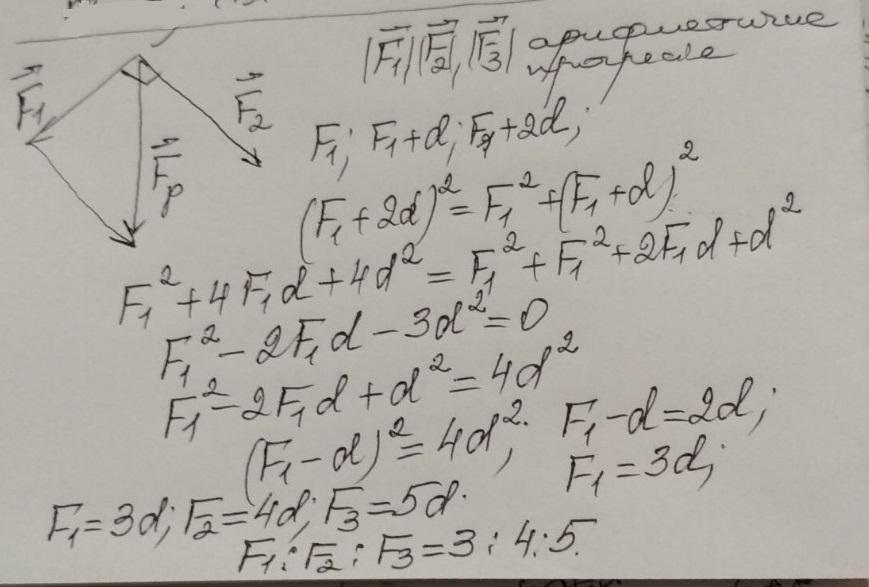 |F⃗1| |F⃗2|, |F⃗3| арифметичне
прогресие
F⃗1
F⃗2
F⃗р
F1; F1+d; F1+2d;
(F1+2d)² = F1² + (F1+d)²
F1² + 4F1d + 4d² = F1² + F1² + 2F1d + d²
F1² - 2F1d - 3d² = 0
F1² - 2F1d + d² = 4d²
(F1-d)² = 4d²; F1-d=2d;
F1=3d;
F1=3d; F2=4d; F3=5d.
F1:F2:F3=3:4:5.